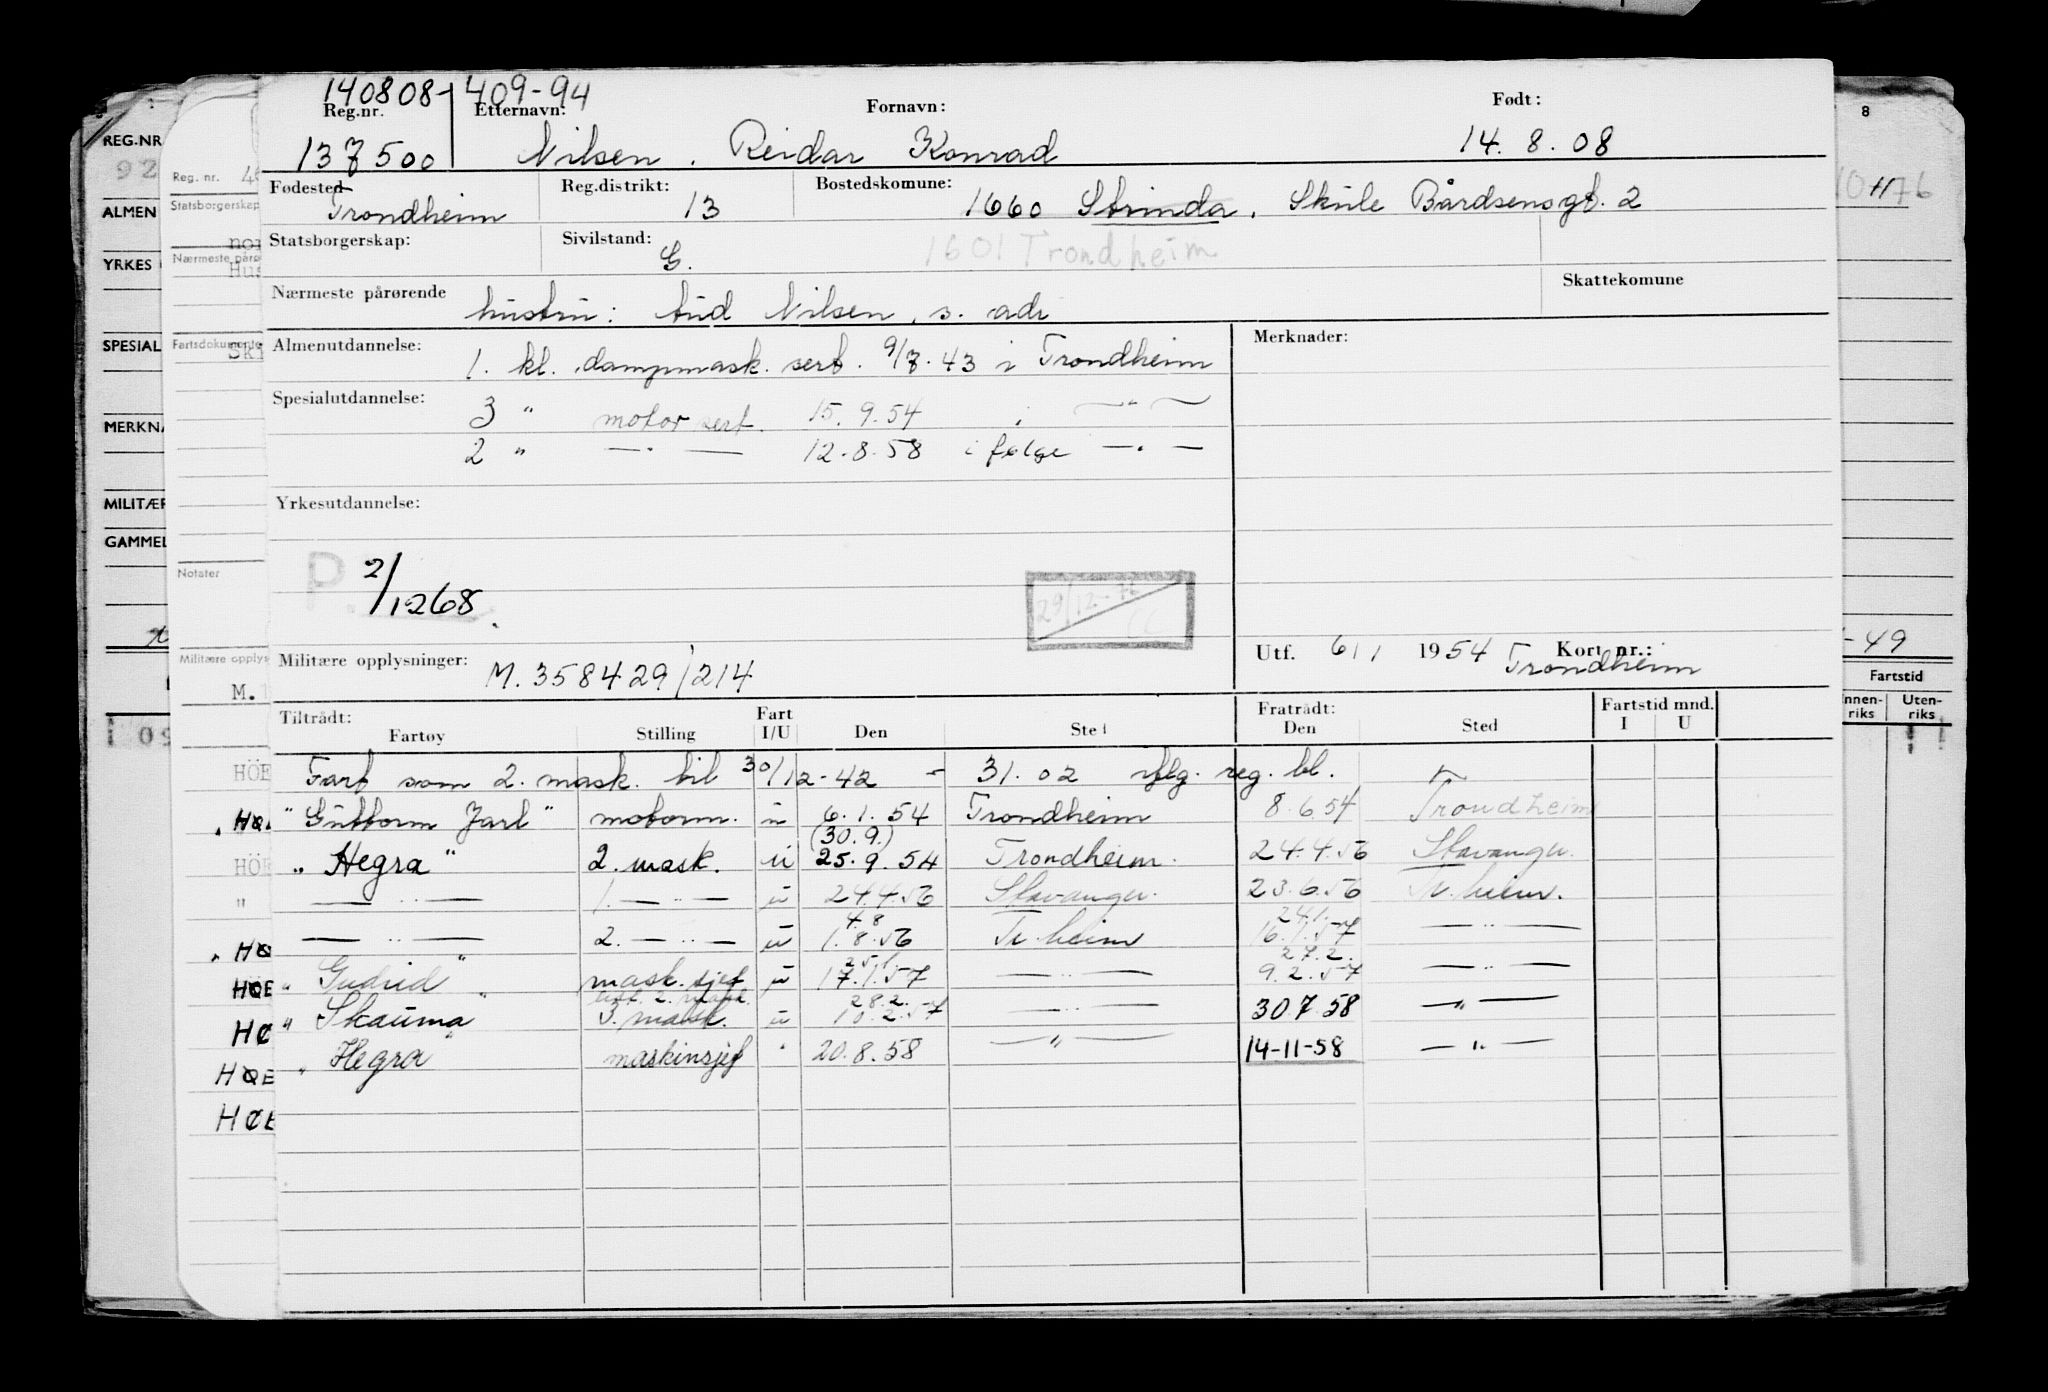 140808-409-94
Reg.nr. Etternavn: Fornavn: Født:
137500 Nilsen, Reidar Konrad 14.8.08
Fødested Reg.distrikt: Bostedskomune:
Trondheim 13 1660 Strinda, Skule Bårdsensgt. 2
Statsborgerskap: Sivilstand: G. 1601 Trondheim
Nærmeste pårørende Skattekomune
hustru: Aud Nilsen, s. adr
Almenutdannelse: Merknader:
1. kl. dampmask. sert. 9/7.43 i Trondheim
Spesialutdannelse: 3 " motor sert. 15.9.54 i — " —
2 " — . — 12.8.58 i følge — . —
Yrkesutdannelse:
P. 2/1268
29/12-72
Militære opplysninger: M. 358429/214
Utf. 6/1 1954 Kort nr.: Trondheim
Tiltrådt: Fart Fratrådt: Fartstid mnd.
Fartøy Stilling I/U Den Sted Den Sted I U
Fart som 2. mask. til 30/12-42 - 31.02 iflg. reg. bl.
"Guttorm Jarl" motorm. u 6.1.54 Trondheim 8.6.54 Trondheim
(30.9.)
"Hegra" 2. mask. u 25.9.54 Trondheim. 24.4.56 Stavanger.
— " — 1. — " — u 24.4.56 Stavanger. 23.6.56 Tr.heim.
4.8 24.1.
— " — 2. — " — u 1.8.56 Tr.heim 16.1.57 — " —
25.1. 27.2.
"Gudrid" mask.sjef u 17.1.57 — " — 9.2.57 — " —
28.2.
"Skauma" 3. mask. u 10.2.57 — " — 30.7.58 — " —
"Hegra" maskinsjef " 20.8.58 — " — 14-11-58 — " —
REG.NR
92
ALMEN
YRKES
SPESIAL
MERKNA
MILITÆR
GAMMEL
Reg. nr.
Statsborgerskap
Nærmeste påro
Fartsdokumente
Notater
Militære opplys
M.
HÖE
HÖE
HØE
HØE
8
-49
Fartstid
nnen-riks Uten-riks